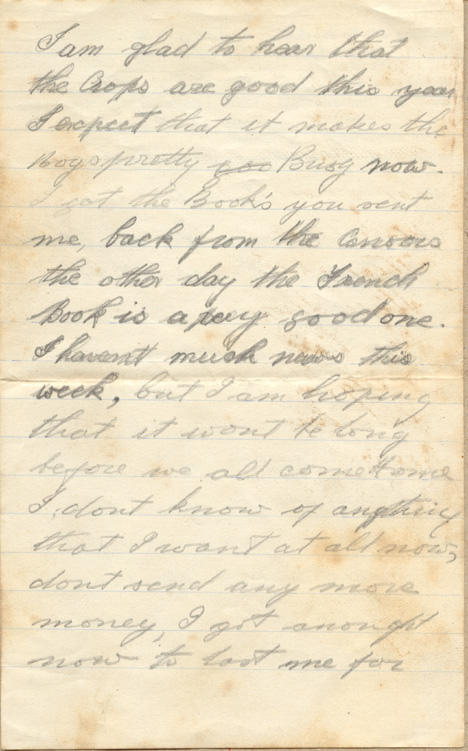 I am glad to hear that
the Crops are good this year
I expect that it makes the
Boys pretty too Busy now.
I got the Book's you sent
me, back from the Censors
the other day the French
Book is a very good one.
I havent much news this
week, but I am hoping
that it wont be long
before we all come Home
I dont know of anything
that I want at all now,
dont send any more
money, I got enough
now to last me for